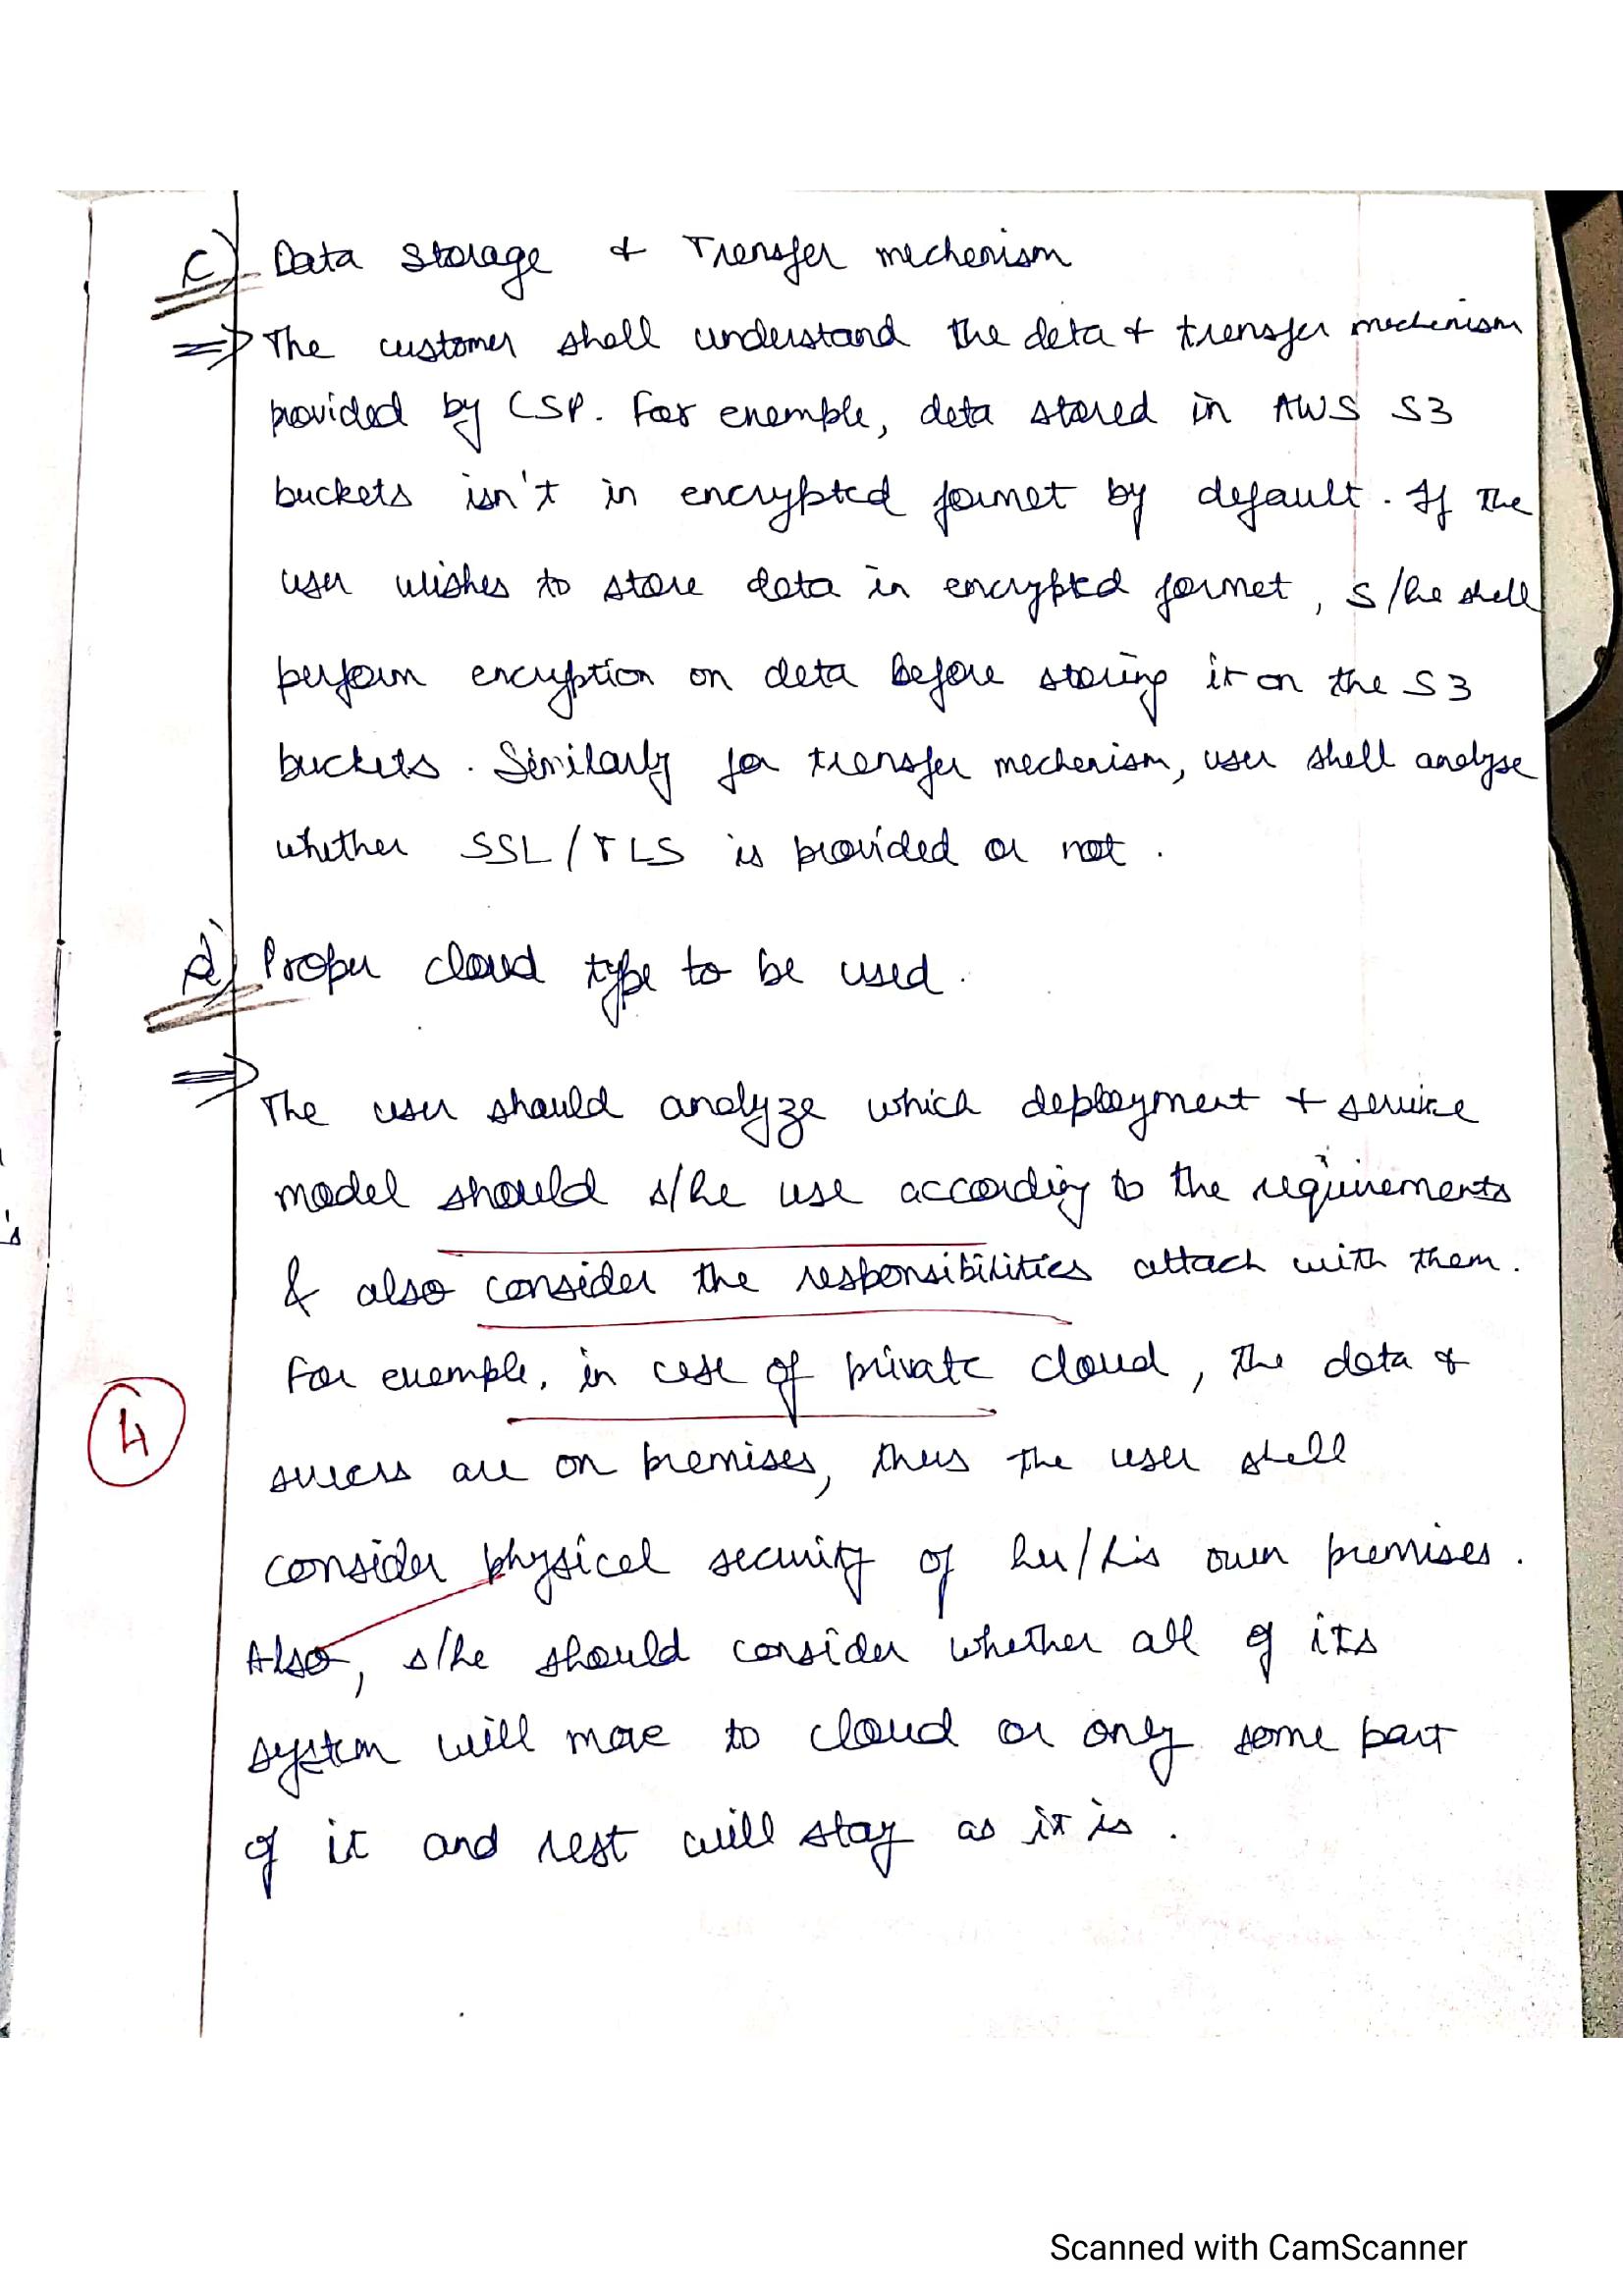 c) Data Storage & Transfer mechanism
=> The customer shall understand the data & transfer mechanism
provided by CSP. For example, data stored in AWS S3
buckets isn't in encrypted format by default. If the
user wishes to store data in encrypted format, s/he shall
perform encryption on data before storing it on the S3
buckets. Similarly for transfer mechanism, user shall analyse
whether SSL/TLS is provided or not.
d) Proper cloud type to be used.
=>
The user should analyze which deployment & service
model should s/he use according to the requirements
& also consider the responsibilities attach with them.
For example, in case of private cloud, the data &
are on premises, thus the user shall
4
consider physical security of her/his own premises.
Also, s/he should consider whether all of its
system will move to cloud or only some part
of it and rest will stay as it is.
's
Scanned with CamScanner